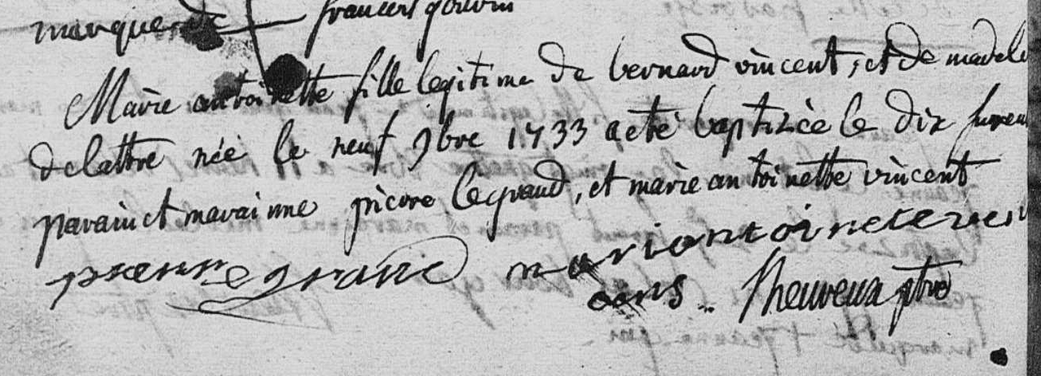 marque de françois
Marie antoinette fille legitime de bernard vincent, et de madele
delattre née le neuf 9bre 1733 a eté baptizée le dix furent
parain et maraine pierre legrand, et marie antoinette vincent
pierre le grand mariantoinete
Theuveux ptre